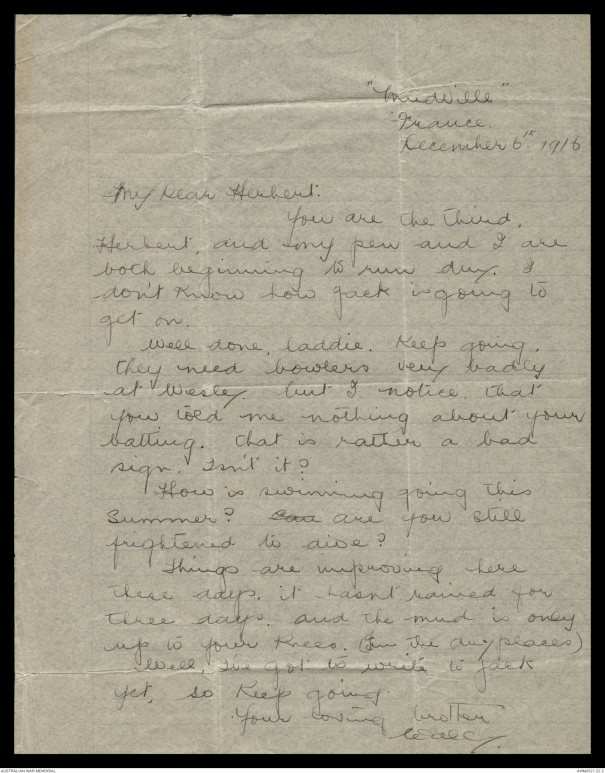 "Mudville"
France.
December 6th. 1916
My Dear Herbert.
You are the third,
Herbert, and my pen and I are
both beginning to run dry. I
don't know how Jack is going to
get on.
Well done, laddie. Keep going.
they need bowlers very badly
at Wesley but I notice, that
you told me nothing about your
batting. that is rather a bad
sign, Isn't it?
How is swimming going this
Summer? are you still
frightened to dive?
Things are improving here
these days. it hasn't rained for
three days, and the mud is only
up to your knees. (In the dry places)
Well, I've got to write to Jack
yet, so keep going.
Your loving brother
AUSTRALIAN WAR MEMORIAL